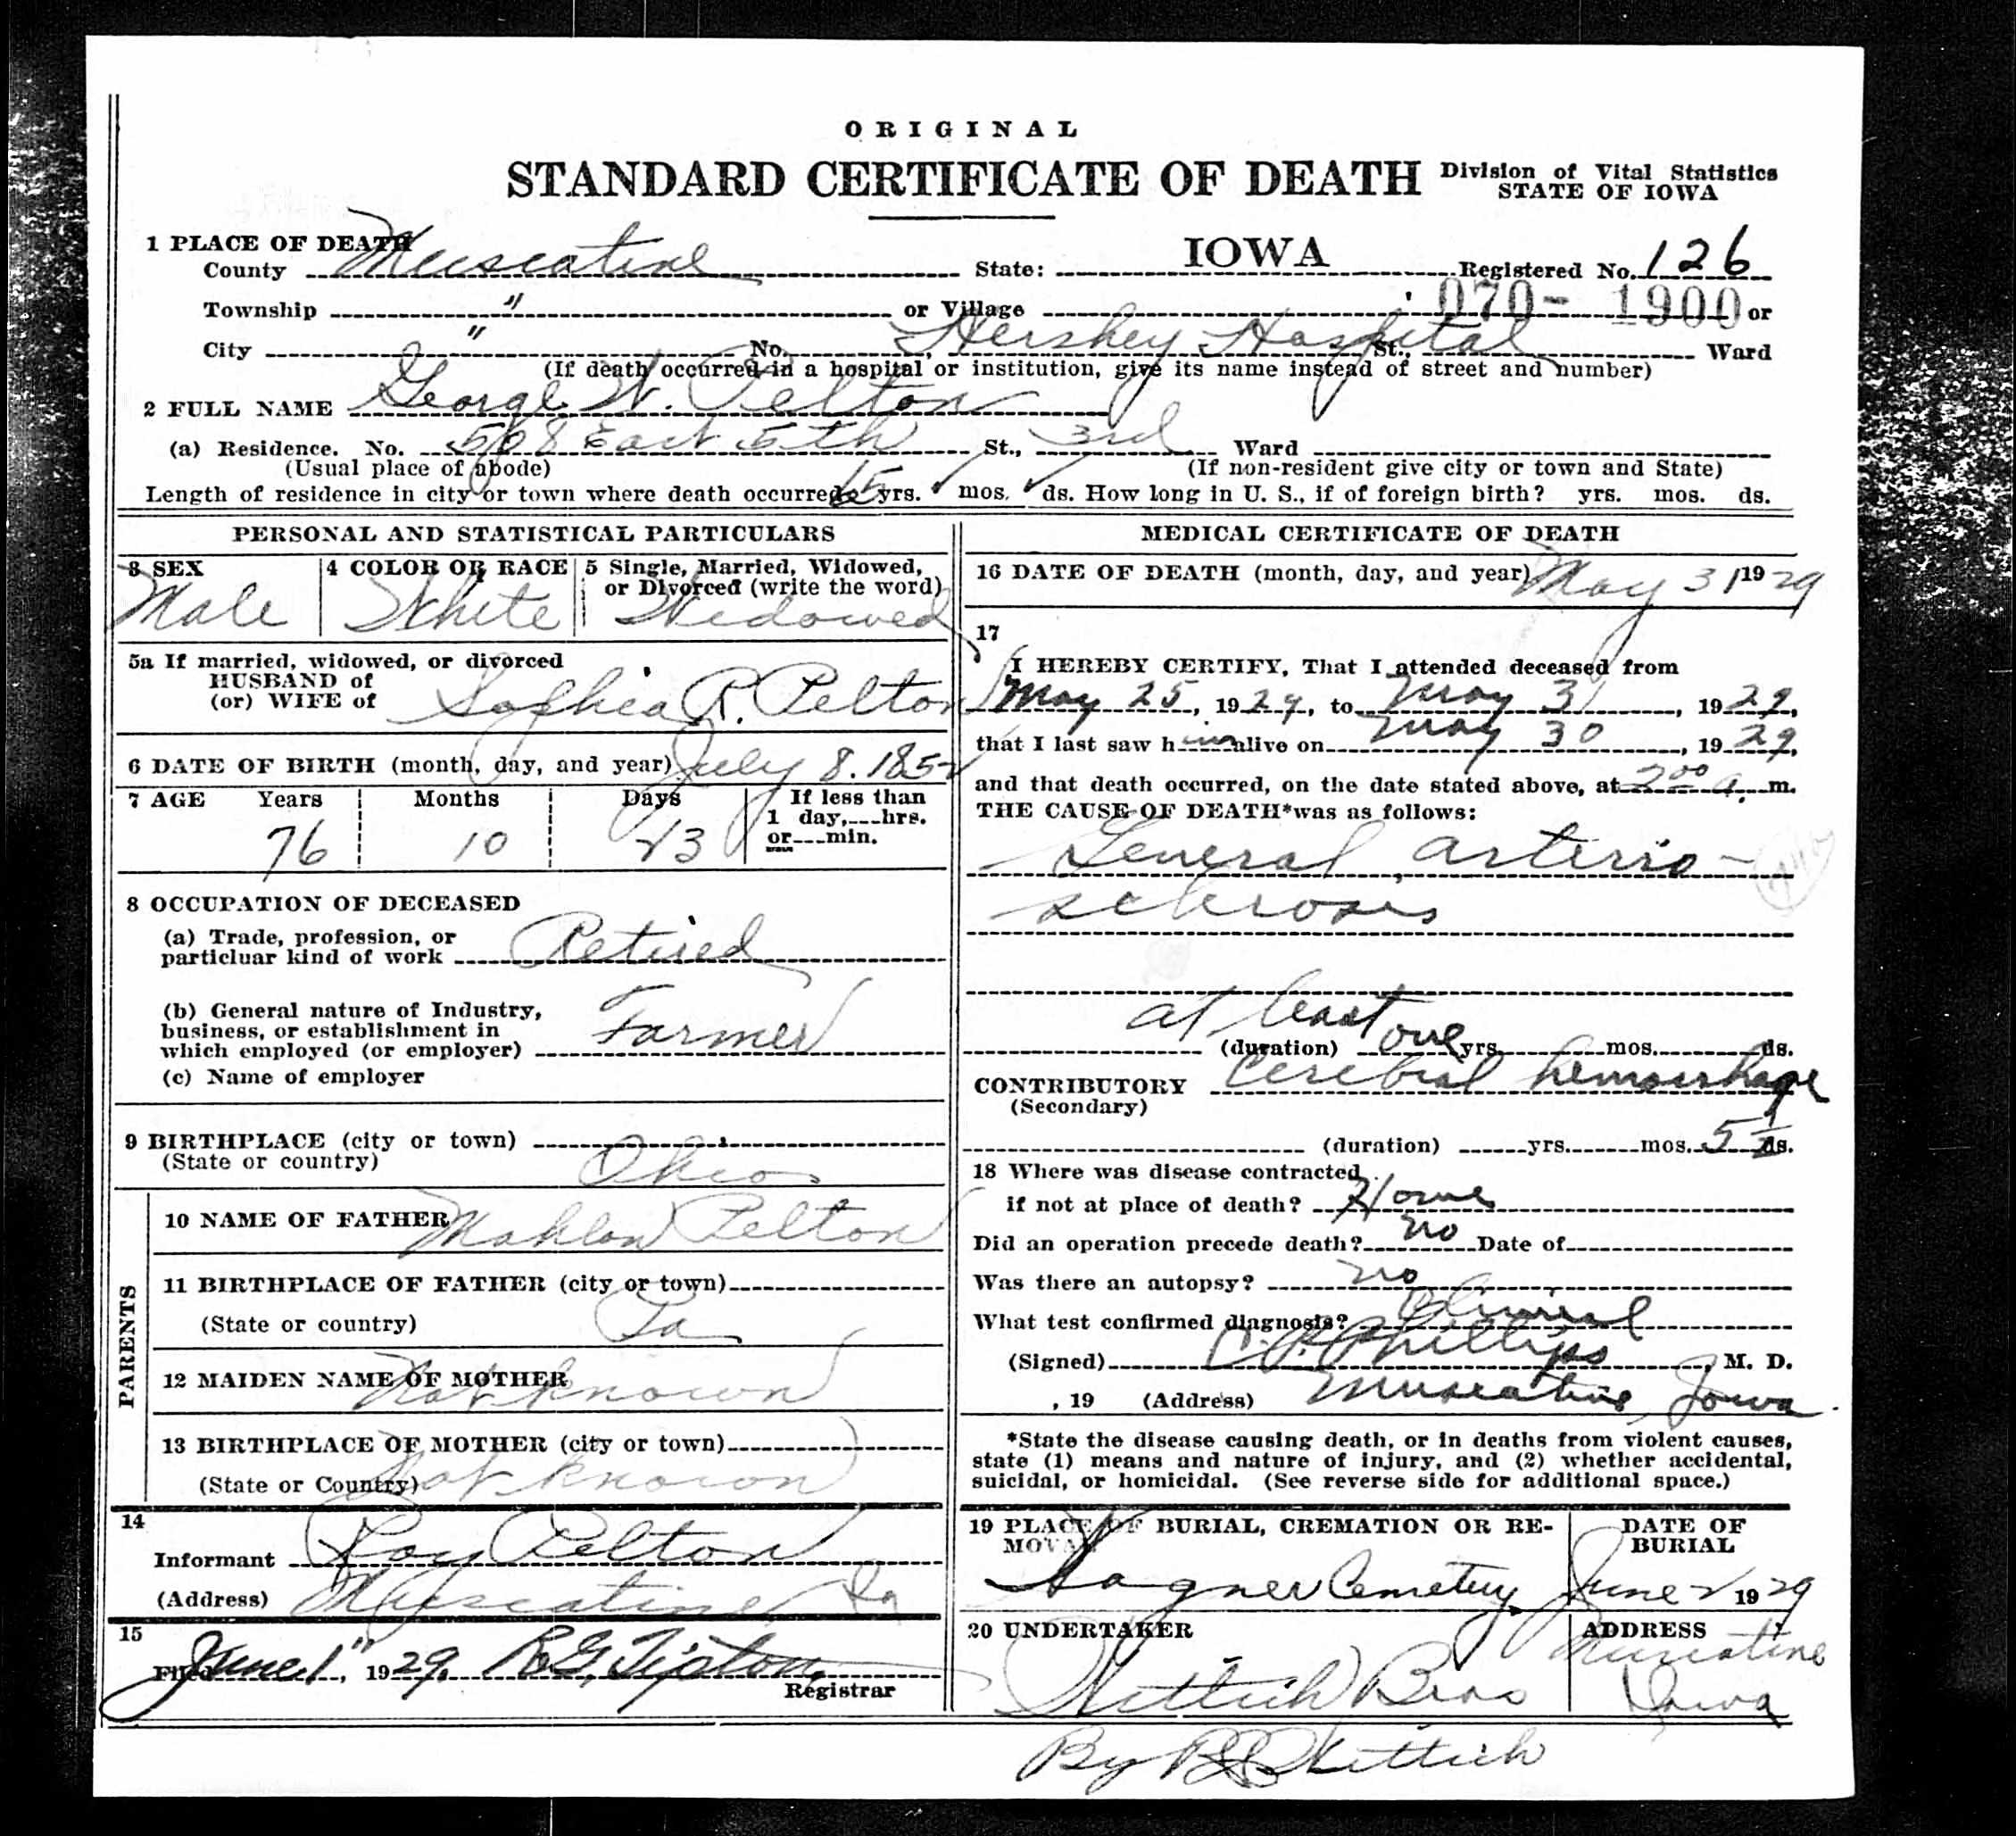 ORIGINAL
STANDARD CERTIFICATE OF DEATH Division of Vital Statistics
STATE OF IOWA
1 PLACE OF DEATH
County Muscatine State: IOWA Registered No. 126
Township " or Village 070- 1900 or
City " No. Hershey Hospital St., Ward
(If death occurred in a hospital or institution, give its name instead of street and number)
2 FULL NAME George W. Pelton
(a) Residence. No. 508 East 5th St., 3rd Ward
(Usual place of abode) (If non-resident give city or town and State)
Length of residence in city or town where death occurred 15 yrs. ✓ mos. ✓ ds. How long in U. S., if of foreign birth? yrs. mos. ds.
PERSONAL AND STATISTICAL PARTICULARS
3 SEX 4 COLOR OR RACE 5 Single, Married, Widowed,
or Divorced (write the word)
Male White Widowed
5a If married, widowed, or divorced
HUSBAND of
(or) WIFE of Sophia R. Pelton
6 DATE OF BIRTH (month, day, and year) July 8. 1852
7 AGE Years Months Days If less than
1 day,---hrs.
or---min.
76 10 23
8 OCCUPATION OF DECEASED
(a) Trade, profession, or
particluar kind of work Retired
(b) General nature of Industry,
business, or establishment in
which employed (or employer) Farmer
(c) Name of employer
9 BIRTHPLACE (city or town)
(State or country) Ohio
PARENTS
10 NAME OF FATHER Mahlon Pelton
11 BIRTHPLACE OF FATHER (city or town)
(State or country)
12 MAIDEN NAME OF MOTHER Not known
13 BIRTHPLACE OF MOTHER (city or town)
(State or Country) Not known
14
Informant Roy Pelton
(Address) Muscatine Ia
15
Filed June 1", 1929. R.G. Tipton
Registrar
MEDICAL CERTIFICATE OF DEATH
16 DATE OF DEATH (month, day, and year) May 31 1929
17
I HEREBY CERTIFY, That I attended deceased from
May 25, 1929, to May 31, 1929,
that I last saw him alive on May 30, 1929,
and that death occurred, on the date stated above, at 2 00 a. m.
THE CAUSE OF DEATH* was as follows:
General arterio-
sclerosis
at least
(duration) one yrs. mos. ds.
CONTRIBUTORY Cerebral hemorrhage
(Secondary)
(duration) yrs. mos. 5 1/2 ds.
18 Where was disease contracted
if not at place of death? Home
Did an operation precede death? no Date of
Was there an autopsy? no
What test confirmed diagnosis? Clinical
(Signed) C.P. Phillips, M. D.
, 19 (Address) Muscatine, Iowa.
*State the disease causing death, or in deaths from violent causes,
state (1) means and nature of injury, and (2) whether accidental,
suicidal, or homicidal. (See reverse side for additional space.)
19 PLACE OF BURIAL, CREMATION OR RE-
MOVAL
DATE OF
BURIAL
Cemetery June 2 1929
20 UNDERTAKER ADDRESS
Wittich Bros Muscatine
Iowa
By Wittich